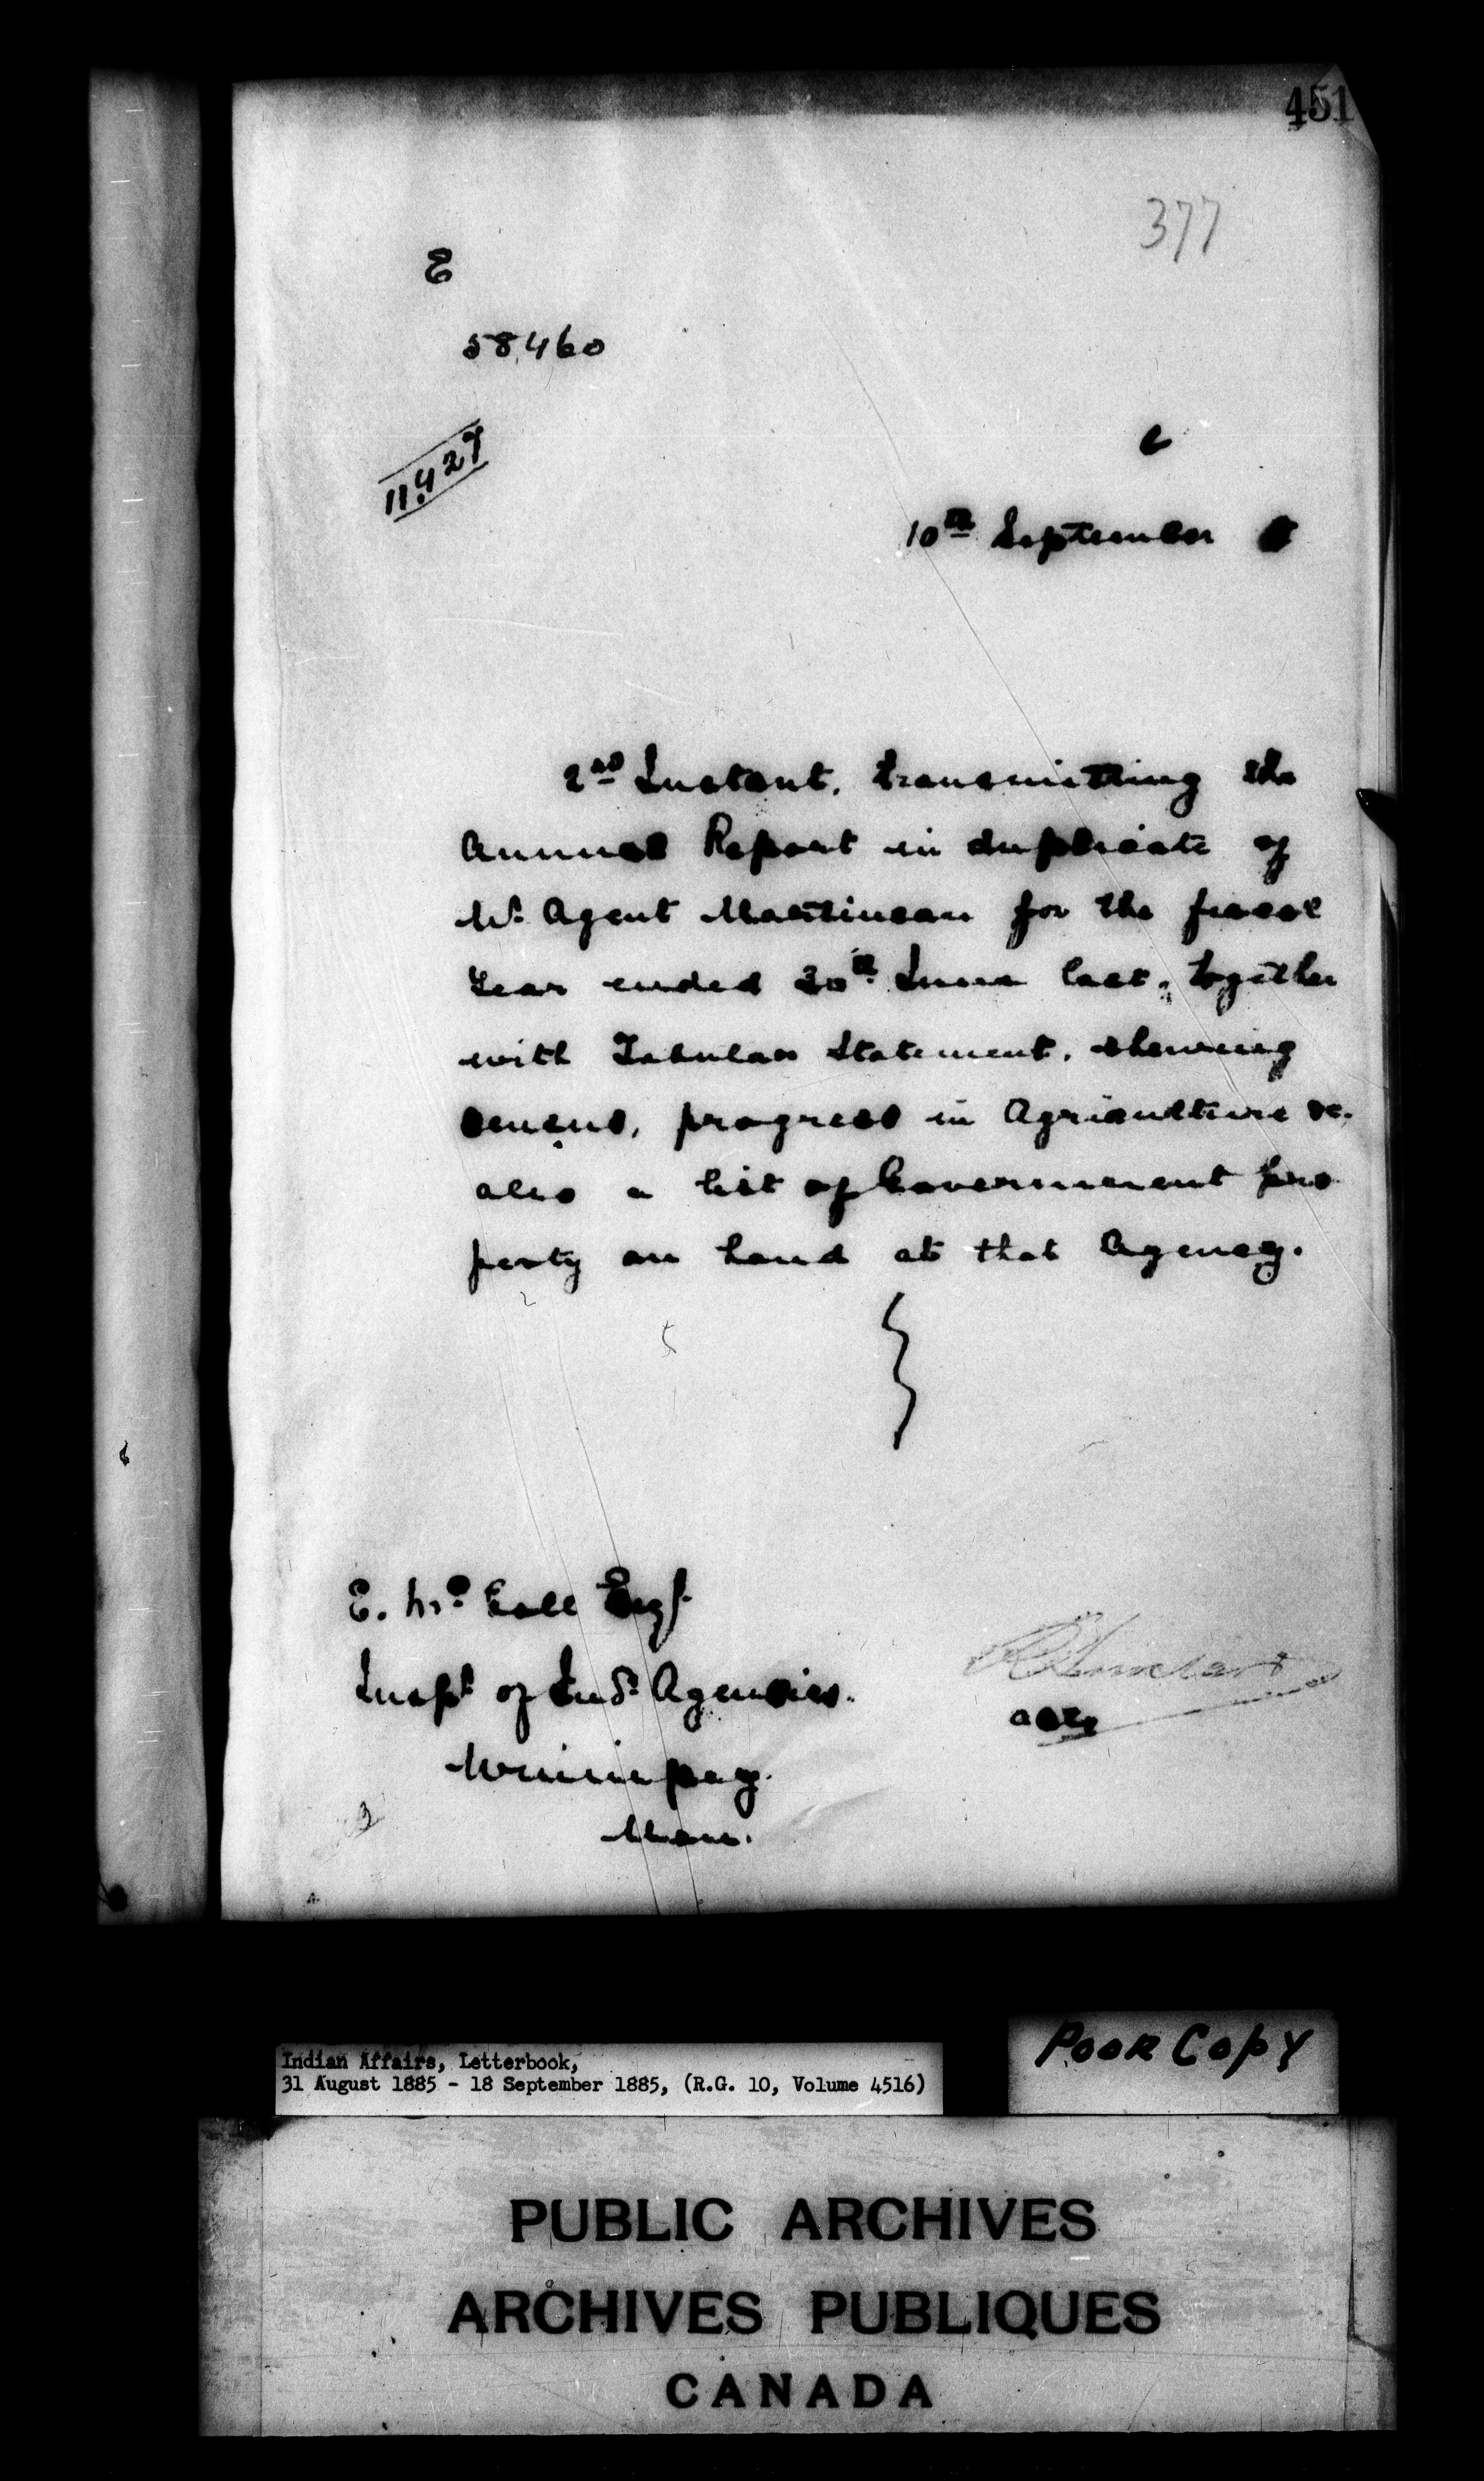 451
377
E
58,460
11,427
10th September 5
2nd Instant, transmitting the
Annual Report in duplicate of
Mr. Agent Martineau for the fiscal
Year ended 30th June last, together
with Tabular Statement, shewing
census, progress in Agriculture &c.
also a list of Government pro
perty on hand at that Agency.
E. McColl Esq.
Inspr. of Ind. Agencies.
Winnipeg.
Man.
Indian Affairs, Letterbook,
31 August 1885 - 18 September 1885, (R.G. 10, Volume 4516)
POOR COPY
PUBLIC ARCHIVES
ARCHIVES PUBLIQUES
CANADA